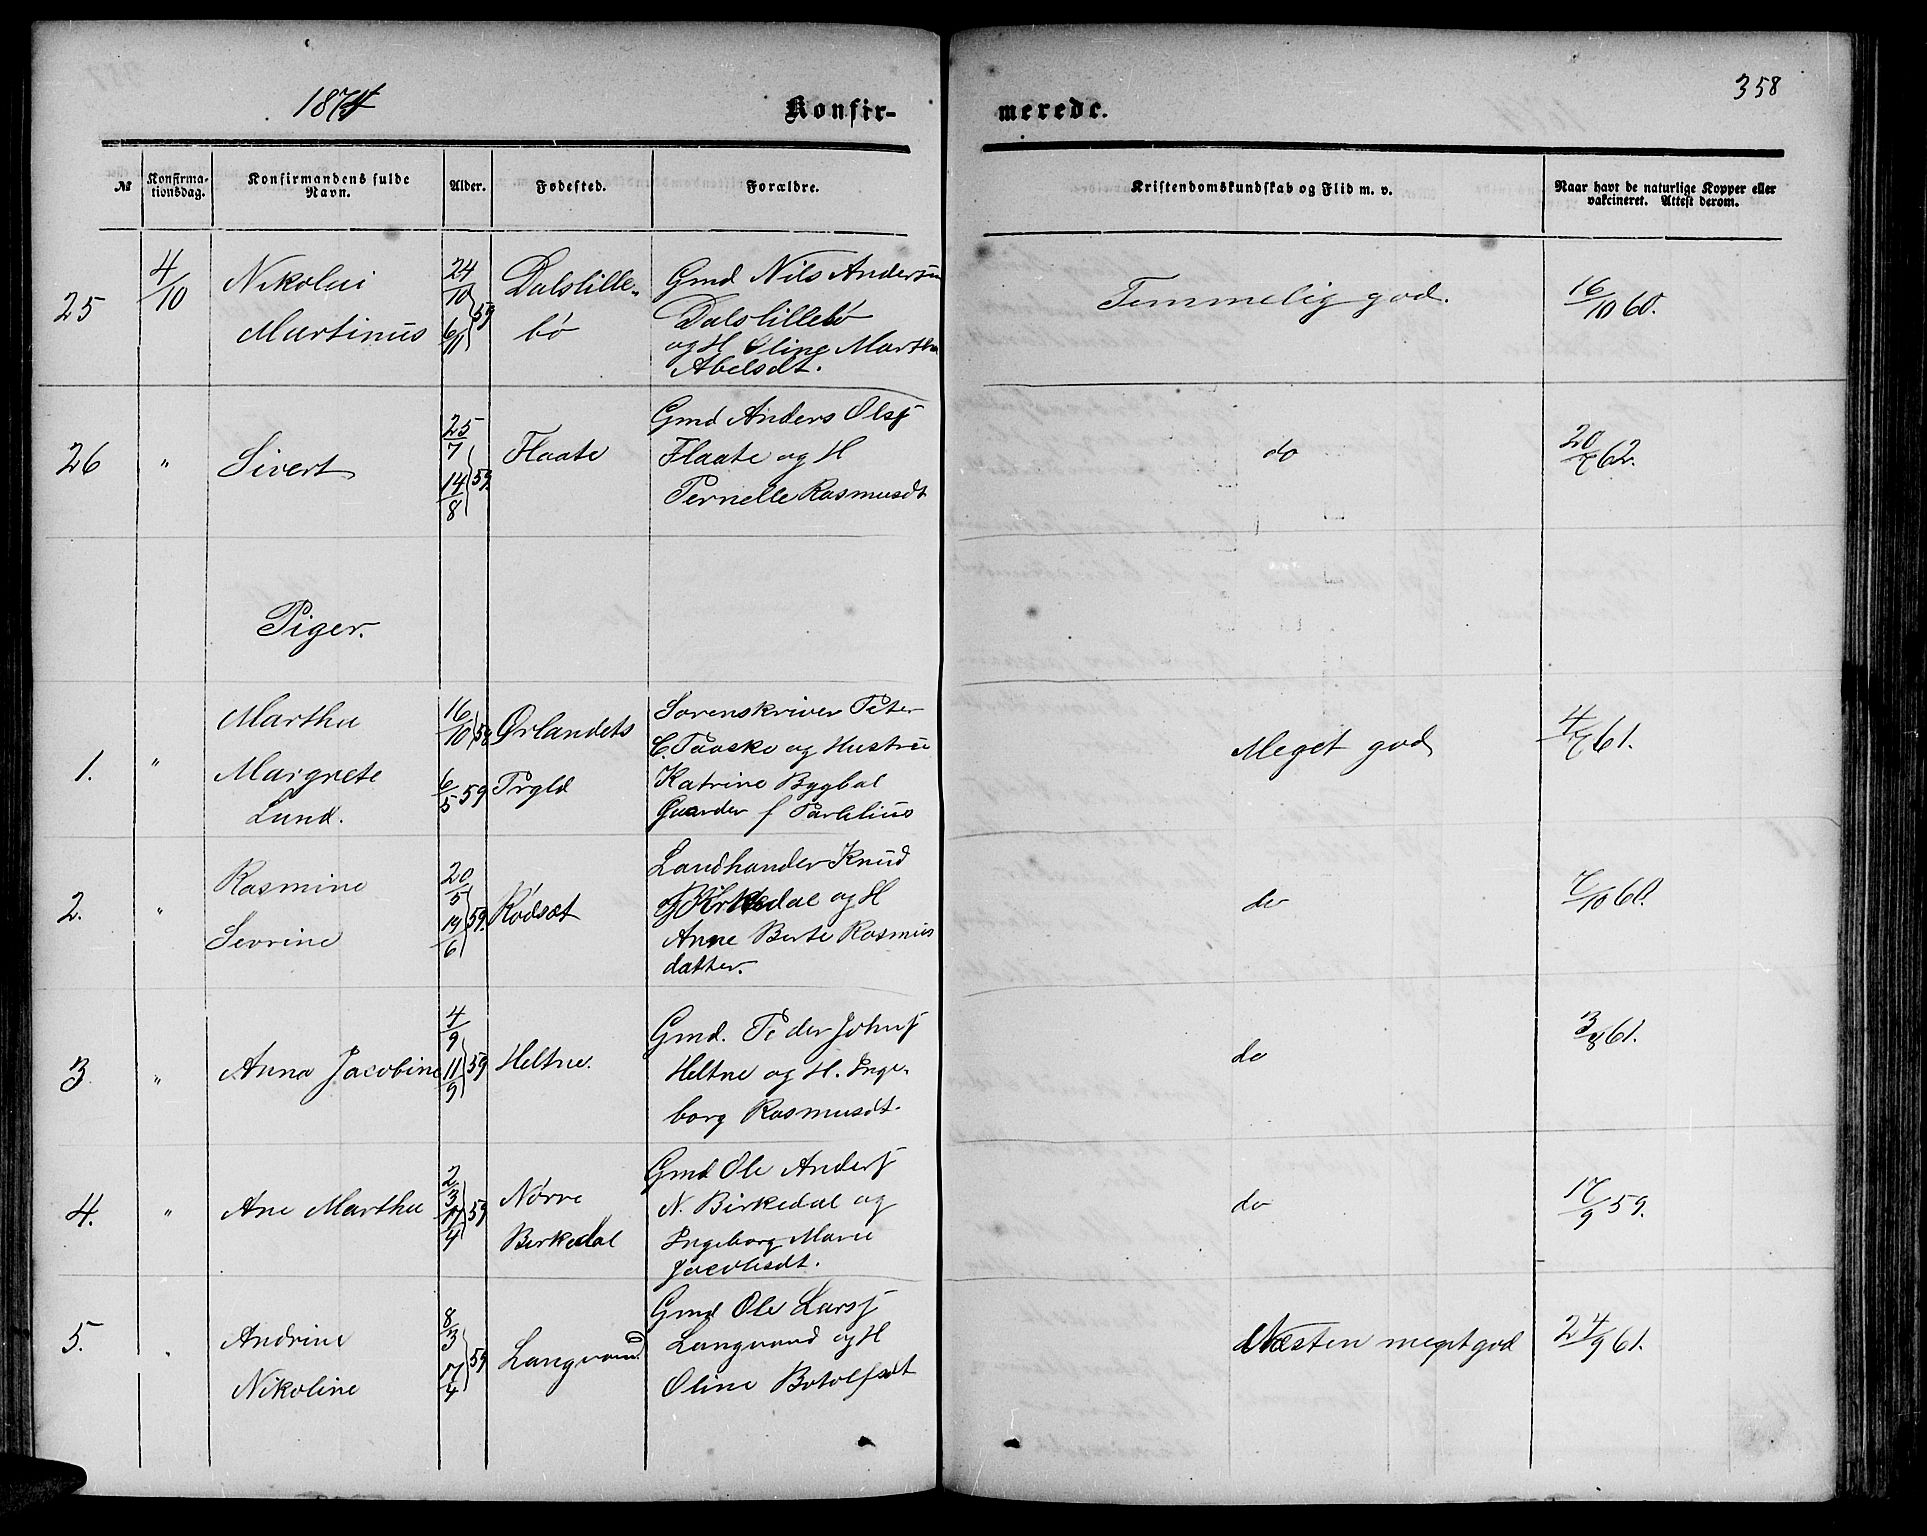 1874
Konfir-
merede.
358
№
Konfirma-
tionsdag.
Konfirmandens fulde
Navn.
Alder.
Fødested.
Forældre.
Kristendomskundskab og Flid m. v.
Naar havt de naturlige Kopper eller
vakcineret. Attest derom.
25 4/10 Nikolai 24/10 Dalslille- Gmd Nils Andersen
Martinus 6/11 59 bö Dalslillebö
og H Oline Martha
Abelsdt.
Temmelig god. 16/10 60.
26 " Sivert 25/7 14/8 59. Flaate Gmd Anders Ols
Flaate og H
Pernelle Rasmusdt
do 20/7 62.
Piger.
1. " Martha 16/10 58 Ørlandets Sorenskriver Peter
Margrete 6/5 59 Prgld C. Taaske og Hustru
Lund. Katrine Bygbal
f
Meget god 4/7 61.
2. " Rasmine 20/5 Rödsæt Landhander Knud
Sevrine 19/6 59. og H
Anne Berte Rasmus
datter.
do 7/10 60.
3. " Anna Jacobine 4/9 11/9 59 Heltne. Gmd. Peder Johns
Heltne og H. Inge-
borg Rasmusdt.
do 3/8 61.
4. " Ane Martha 2/3 17/4 59 Nörve Gmd Ole Anders
Birkedal N. Birkedal og
Ingeborg Marie
Jacobsdt.
do 17/9 59.
5. " Andrine 8/3 Langvand Gmd Ole Lars
Nikoline 17/4 59 Langvand og H
Oline Botolfsdt
Næsten meget god 24/9 61.